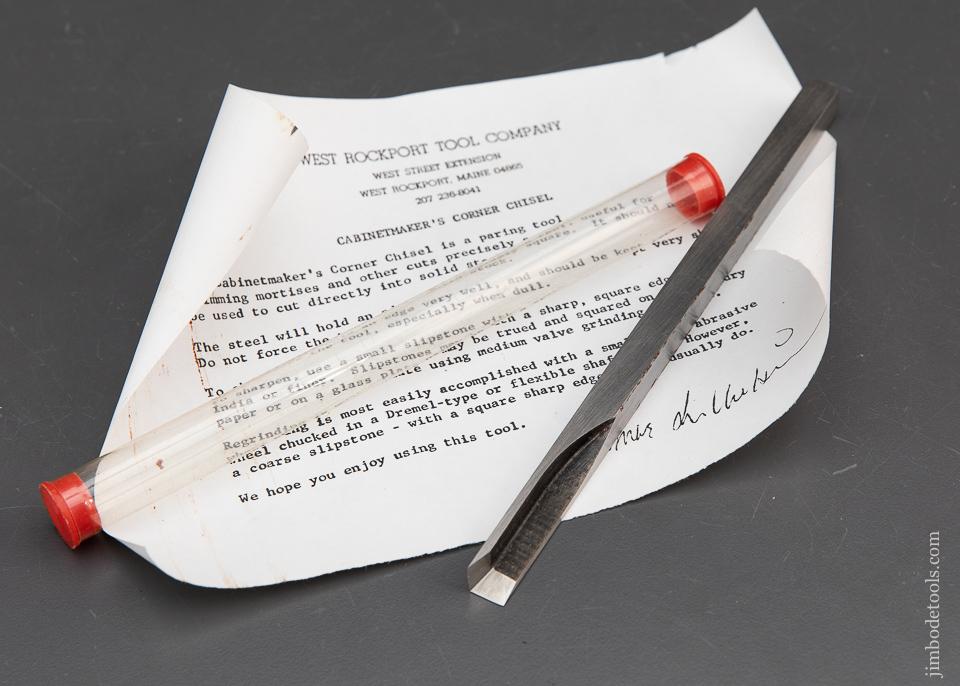 WEST ROCKPORT TOOL COMPANY
WEST STREET EXTENSION
WEST ROCKPORT, MAINE 04865
207 236-8041
CABINETMAKER'S CORNER CHISEL
Cabinetmaker's Corner Chisel is a paring tool useful for
mming mortises and other cuts precisely square. It should
be used to cut directly into solid stock.
The steel will hold an edge very well, and should be kept very
Do not force the tool, especially when dull.
To sharpen, use a small slipstone with a sharp, square edge
India or finer. Slipstones may be trued and squared on dry
paper or on a glass plate using medium valve grinding
Regrinding is most easily accomplished with a abrasive
wheel chucked in a Dremel-type or flexible However,
a coarse slipstone - with a square sharp edge usually do.
We hope you enjoy using this tool.
jimbodetools.com